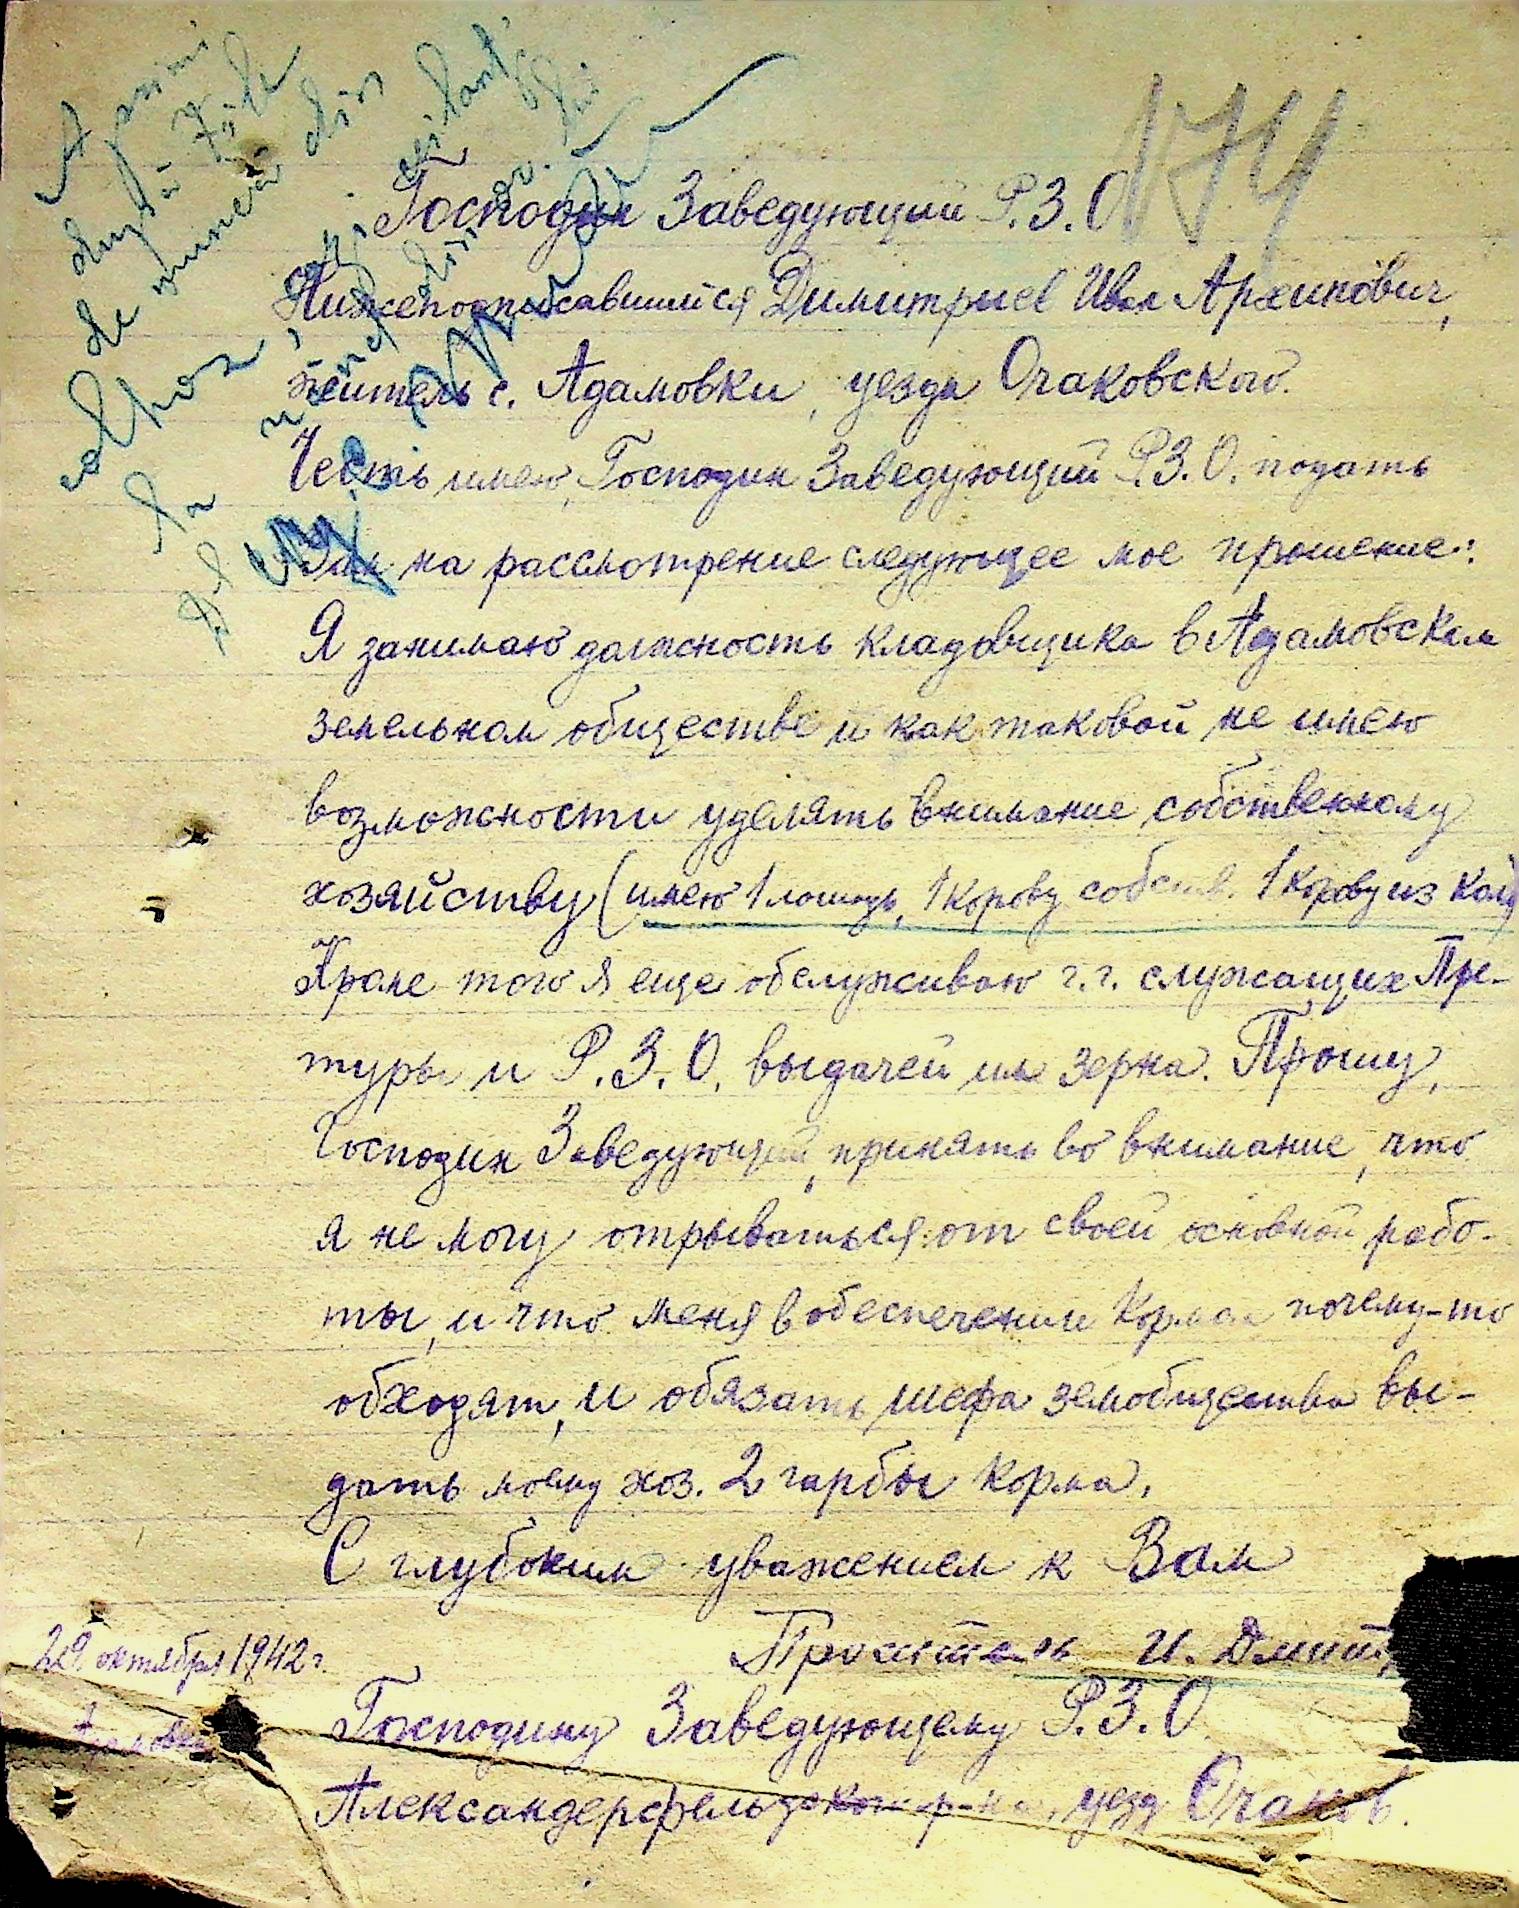 174
Господин Заведующий Р.З.О
Нижеподписавшийся Димитриев Иван Архипович,
житель с. Адамовки, уезда Очаковского.
Честь имею, Господин Заведующий Р.З.О. подать
Вам на рассмотрение следующее мое прошение:
Я занимаю должность кладовщика в Адамовском
земельном обществе и как таковой не имею
возможности уделять внимание собственному
хозяйству (имею 1 лошадь, 1 корову собств. 1 корову из кол)
Кроме того я еще обслуживаю г.г. служащих Пре-
туры и Р.З.О. выдачей им зерна. Прошу,
Господин Заведующий, принять во внимание, что
я не могу отрываться от своей основной рабо-
ты, и что меня в обеспечении кормом почему-то
обходят, и обязать шефа земобщества вы-
дать моему хоз. 2 гарбы корма.
С глубоким уважением к Вам
Проситель И. Дмит
29 октября 1942 г.
Адамовка
Господину Заведующему Р.З.О.
Александерфельдского р-на, уезд Очаков.
A primi
după
de muncă din
colhoz